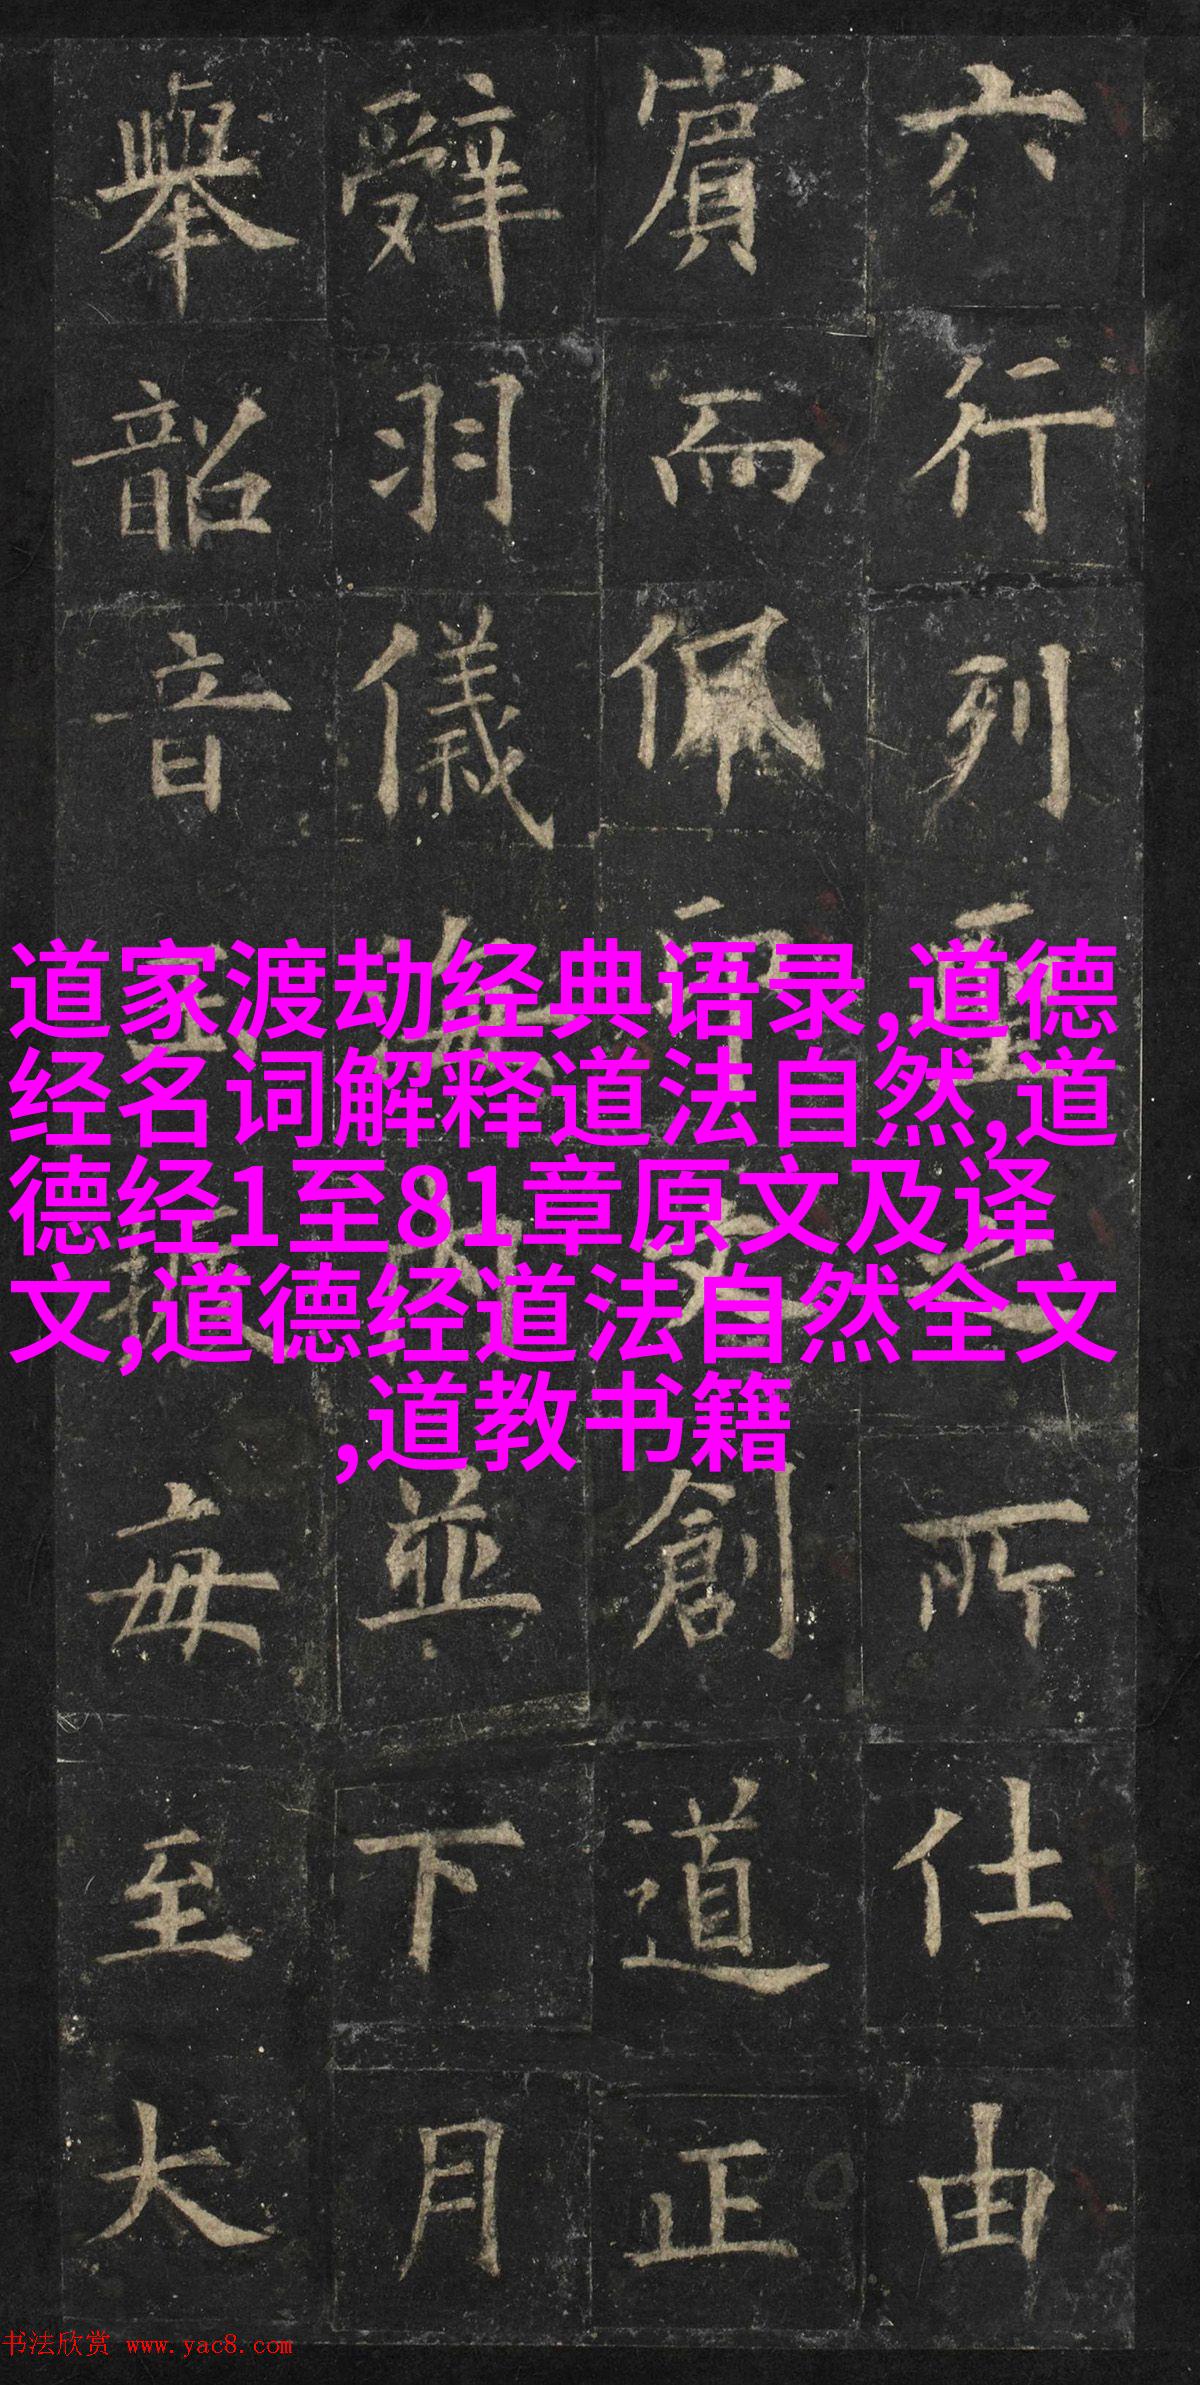 六行列所仕由
賔而佩創道正
辭羽儀並下月
舉韶音毎至大
道家渡劫经典语录,道德
经名词解释道法自然,道
德经1至81章原文及译
文,道德经道法自然全文
,道教书籍
书法欣赏 www.yac8.com